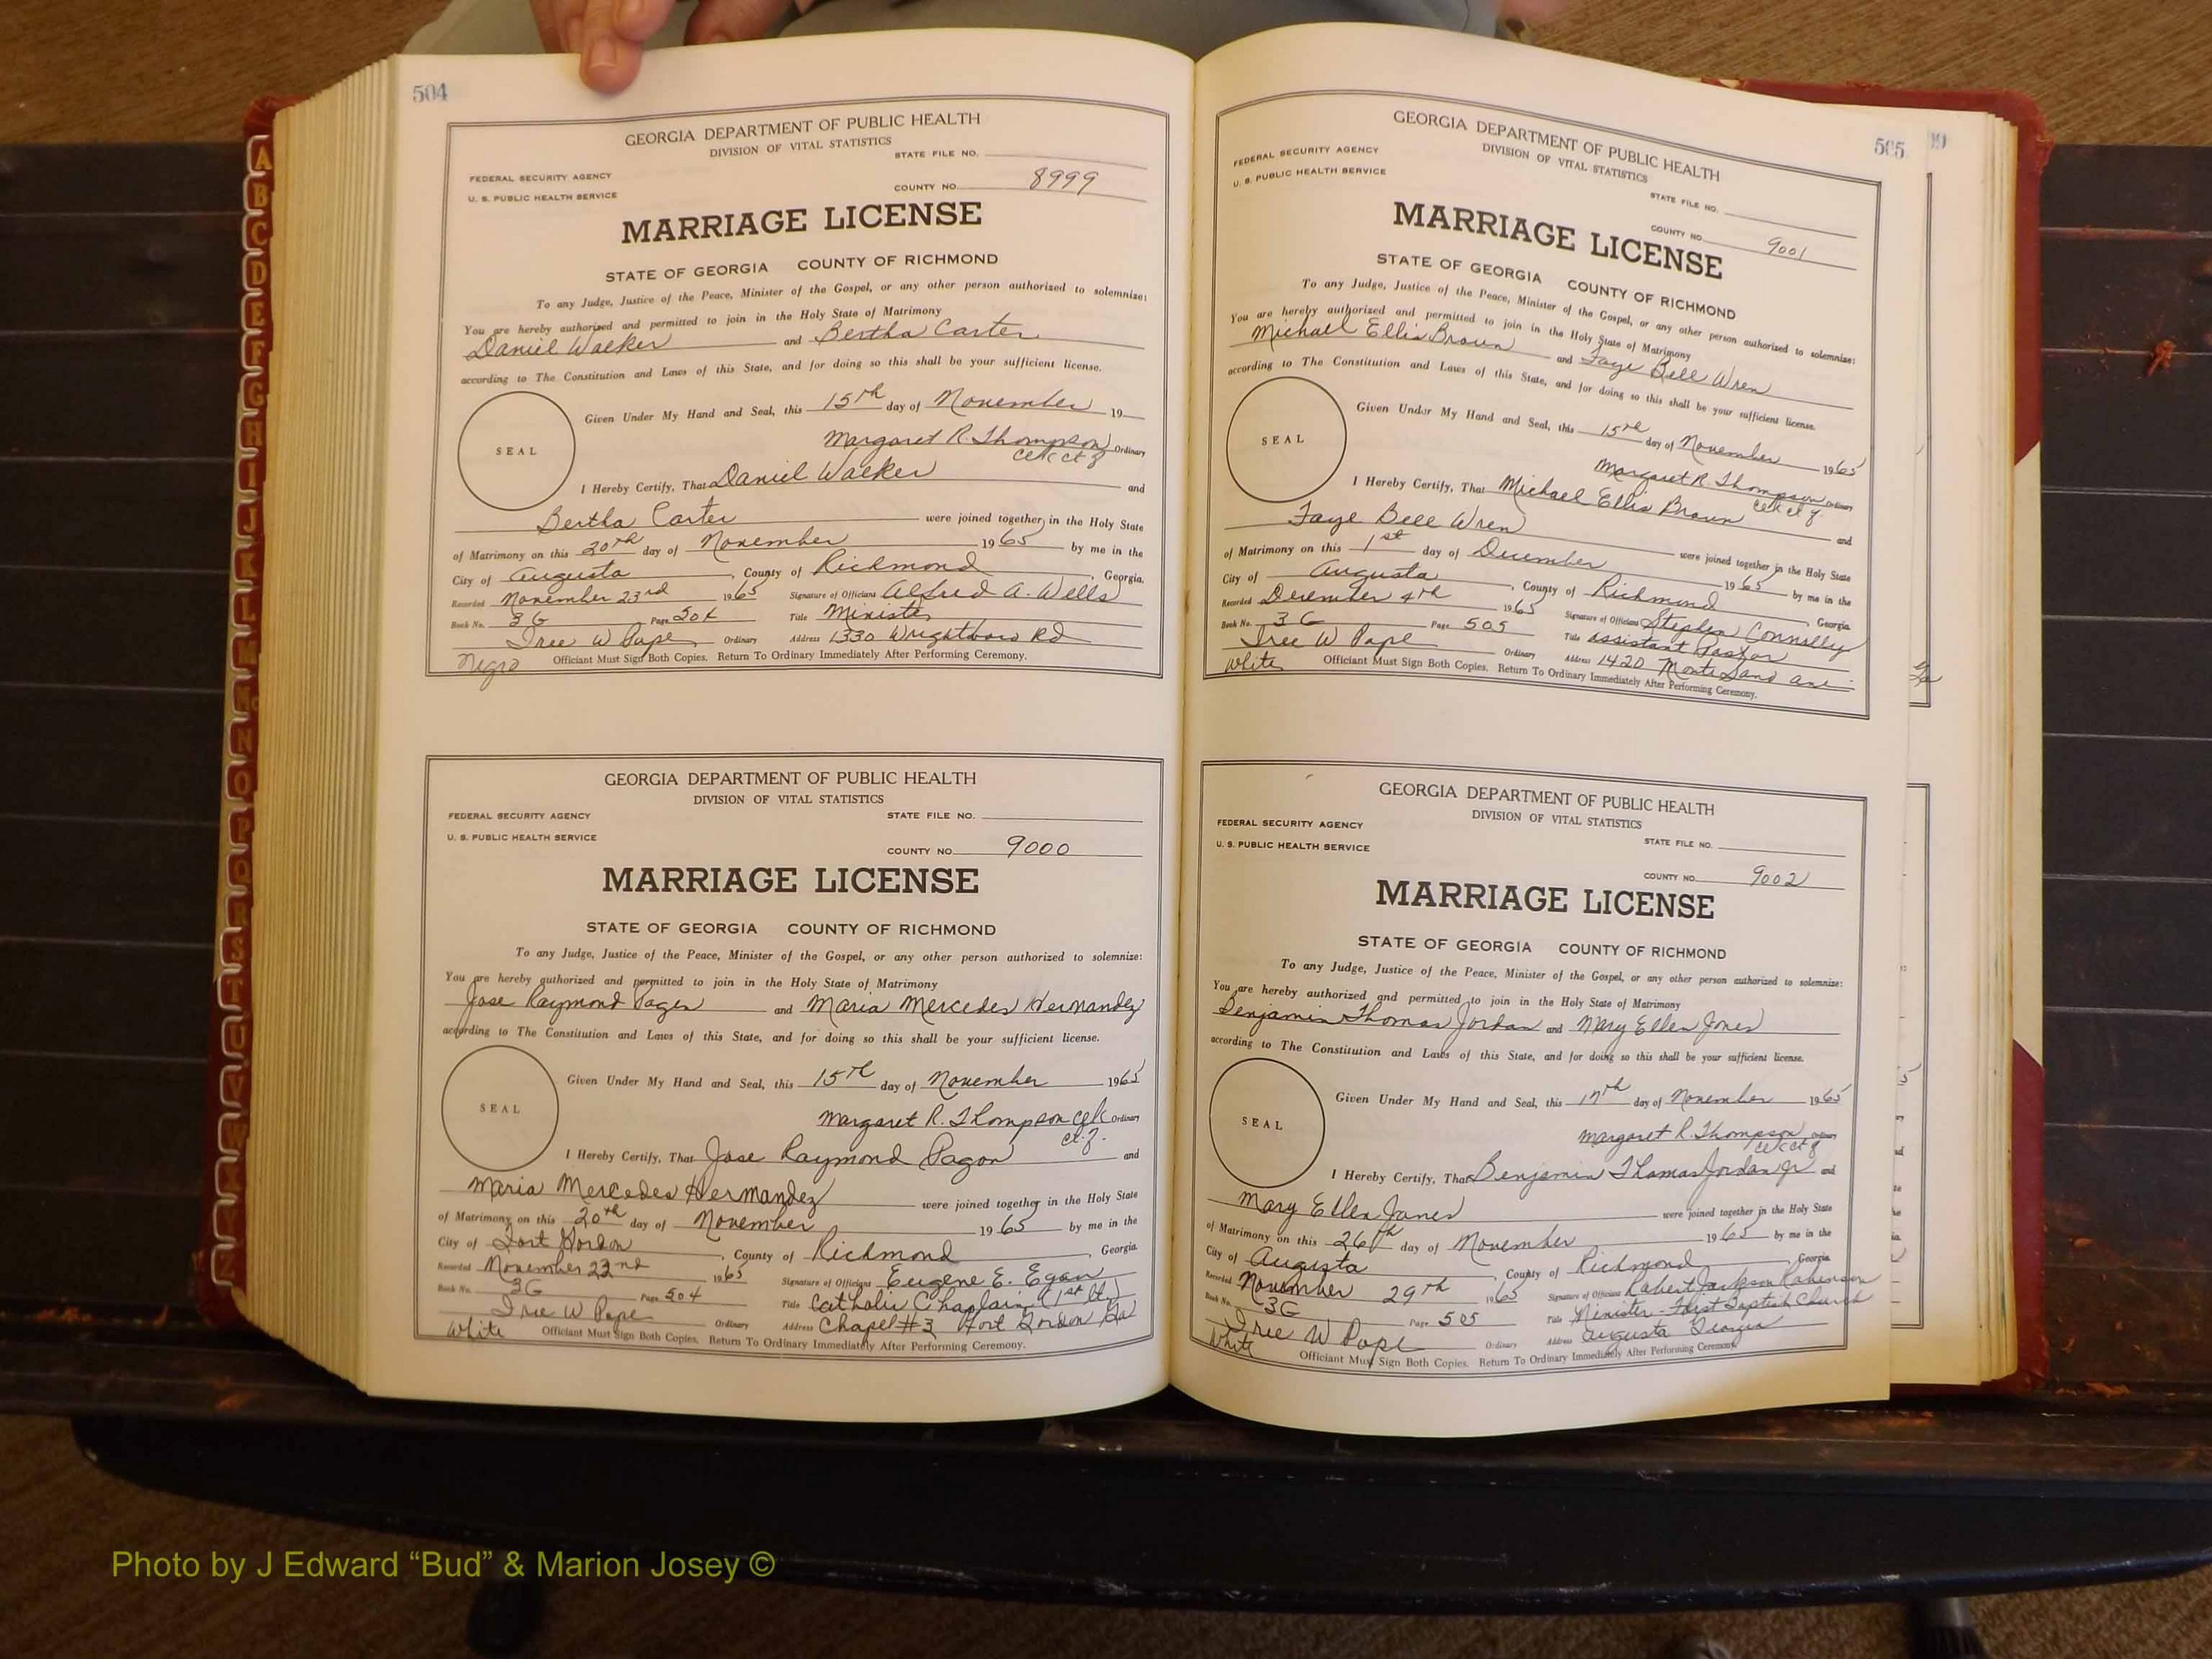 504
GEORGIA DEPARTMENT OF PUBLIC HEALTH
DIVISION OF VITAL STATISTICS
STATE FILE NO.
FEDERAL SECURITY AGENCY
U. S. PUBLIC HEALTH SERVICE
COUNTY NO. 8999
MARRIAGE LICENSE
STATE OF GEORGIA COUNTY OF RICHMOND
To any Judge, Justice of the Peace, Minister of the Gospel, or any other person authorized to solemnize:
You are hereby authorized and permitted to join in the Holy State of Matrimony
Daniel Walker and Bertha Carter
according to The Constitution and Laws of this State, and for doing so this shall be your sufficient license.
Given Under My Hand and Seal, this 15th day of November 19
SEAL
Margaret R. Thompson Ordinary
I Hereby Certify, That Daniel Walker and
Bertha Carter were joined together in the Holy State
of Matrimony on this 20th day of November 1965 by me in the
City of Augusta, County of Richmond, Georgia.
Recorded November 23rd 1965 Signature of Officiant Alfred A. Wells
Book No. 3G Page 504 Title Minister
Ordinary Address 1330 Wrightboro Rd
Negro Officiant Must Sign Both Copies. Return To Ordinary Immediately After Performing Ceremony.
GEORGIA DEPARTMENT OF PUBLIC HEALTH
DIVISION OF VITAL STATISTICS
FEDERAL SECURITY AGENCY STATE FILE NO.
U. S. PUBLIC HEALTH SERVICE
COUNTY NO. 9000
MARRIAGE LICENSE
STATE OF GEORGIA COUNTY OF RICHMOND
To any Judge, Justice of the Peace, Minister of the Gospel, or any other person authorized to solemnize:
You are hereby authorized and permitted to join in the Holy State of Matrimony
Jose Raymond Pagon and Maria Mercedes Hernandez
according to The Constitution and Laws of this State, and for doing so this shall be your sufficient license.
Given Under My Hand and Seal, this 15th day of November 1965
SEAL
Margaret R. Thompson Ordinary
I Hereby Certify, That Jose Raymond Pagon and
Maria Mercedes Hermandez were joined together in the Holy State
of Matrimony on this 20th day of November 1965 by me in the
City of Fort Gordon, County of Richmond, Georgia.
Recorded November 22nd 1965 Signature of Officiant Eugene E. Egan
Book No. 3G Page 504 Title Catholic Chaplain (1st Lt.)
Ordinary Address Chapel #3 Fort Gordon Ga
White Officiant Must Sign Both Copies. Return To Ordinary Immediately After Performing Ceremony.
505
GEORGIA DEPARTMENT OF PUBLIC HEALTH
DIVISION OF VITAL STATISTICS
FEDERAL SECURITY AGENCY
U. S. PUBLIC HEALTH SERVICE
STATE FILE NO.
COUNTY NO. 9001
MARRIAGE LICENSE
STATE OF GEORGIA COUNTY OF RICHMOND
To any Judge, Justice of the Peace, Minister of the Gospel, or any other person authorized to solemnize:
You are hereby authorized and permitted to join in the Holy State of Matrimony
Michael Ellis Braun and Faye Bell Wren
according to The Constitution and Laws of this State, and for doing so this shall be your sufficient license.
Given Under My Hand and Seal, this 15th day of November 1965
SEAL
Margaret R. Thompson Ordinary
I Hereby Certify, That Michael Ellis Braun and
Faye Bell Wren were joined together in the Holy State
of Matrimony on this 1st day of December 1965 by me in the
City of Augusta, County of Richmond, Georgia
Recorded December 4th 1965 Signature of Officiant Stephen Connelly
Book No. 3G Page 505 Title assistant Pastor
Ordinary Address 1420 Monte Sano ave
White Officiant Must Sign Both Copies. Return To Ordinary Immediately After Performing Ceremony.
GEORGIA DEPARTMENT OF PUBLIC HEALTH
DIVISION OF VITAL STATISTICS
FEDERAL SECURITY AGENCY
U. S. PUBLIC HEALTH SERVICE
STATE FILE NO.
COUNTY NO. 9002
MARRIAGE LICENSE
STATE OF GEORGIA COUNTY OF RICHMOND
To any Judge, Justice of the Peace, Minister of the Gospel, or any other person authorized to solemnize:
You are hereby authorized and permitted to join in the Holy State of Matrimony
Benjamin Thomas Jordan and Mary Ellen Jones
according to The Constitution and Laws of this State, and for doing so this shall be your sufficient license.
Given Under My Hand and Seal, this 17th day of November 1965
SEAL
Margaret R. Thompson Ordinary
I Hereby Certify, That Benjamin Thomas Jordan Jr and
Mary Ellen Jones were joined together in the Holy State
of Matrimony on this 26th day of November 1965 by me in the
City of Augusta, County of Richmond, Georgia
Recorded November 29th 1965 Signature of Officiant Robert Jackson Robinson
Book No. 3G Page 505 Title Minister - First Baptist Church
Ordinary Address Augusta Georgia
White Officiant Must Sign Both Copies. Return To Ordinary Immediately After Performing Ceremony.
Photo by J Edward “Bud” & Marion Josey ©